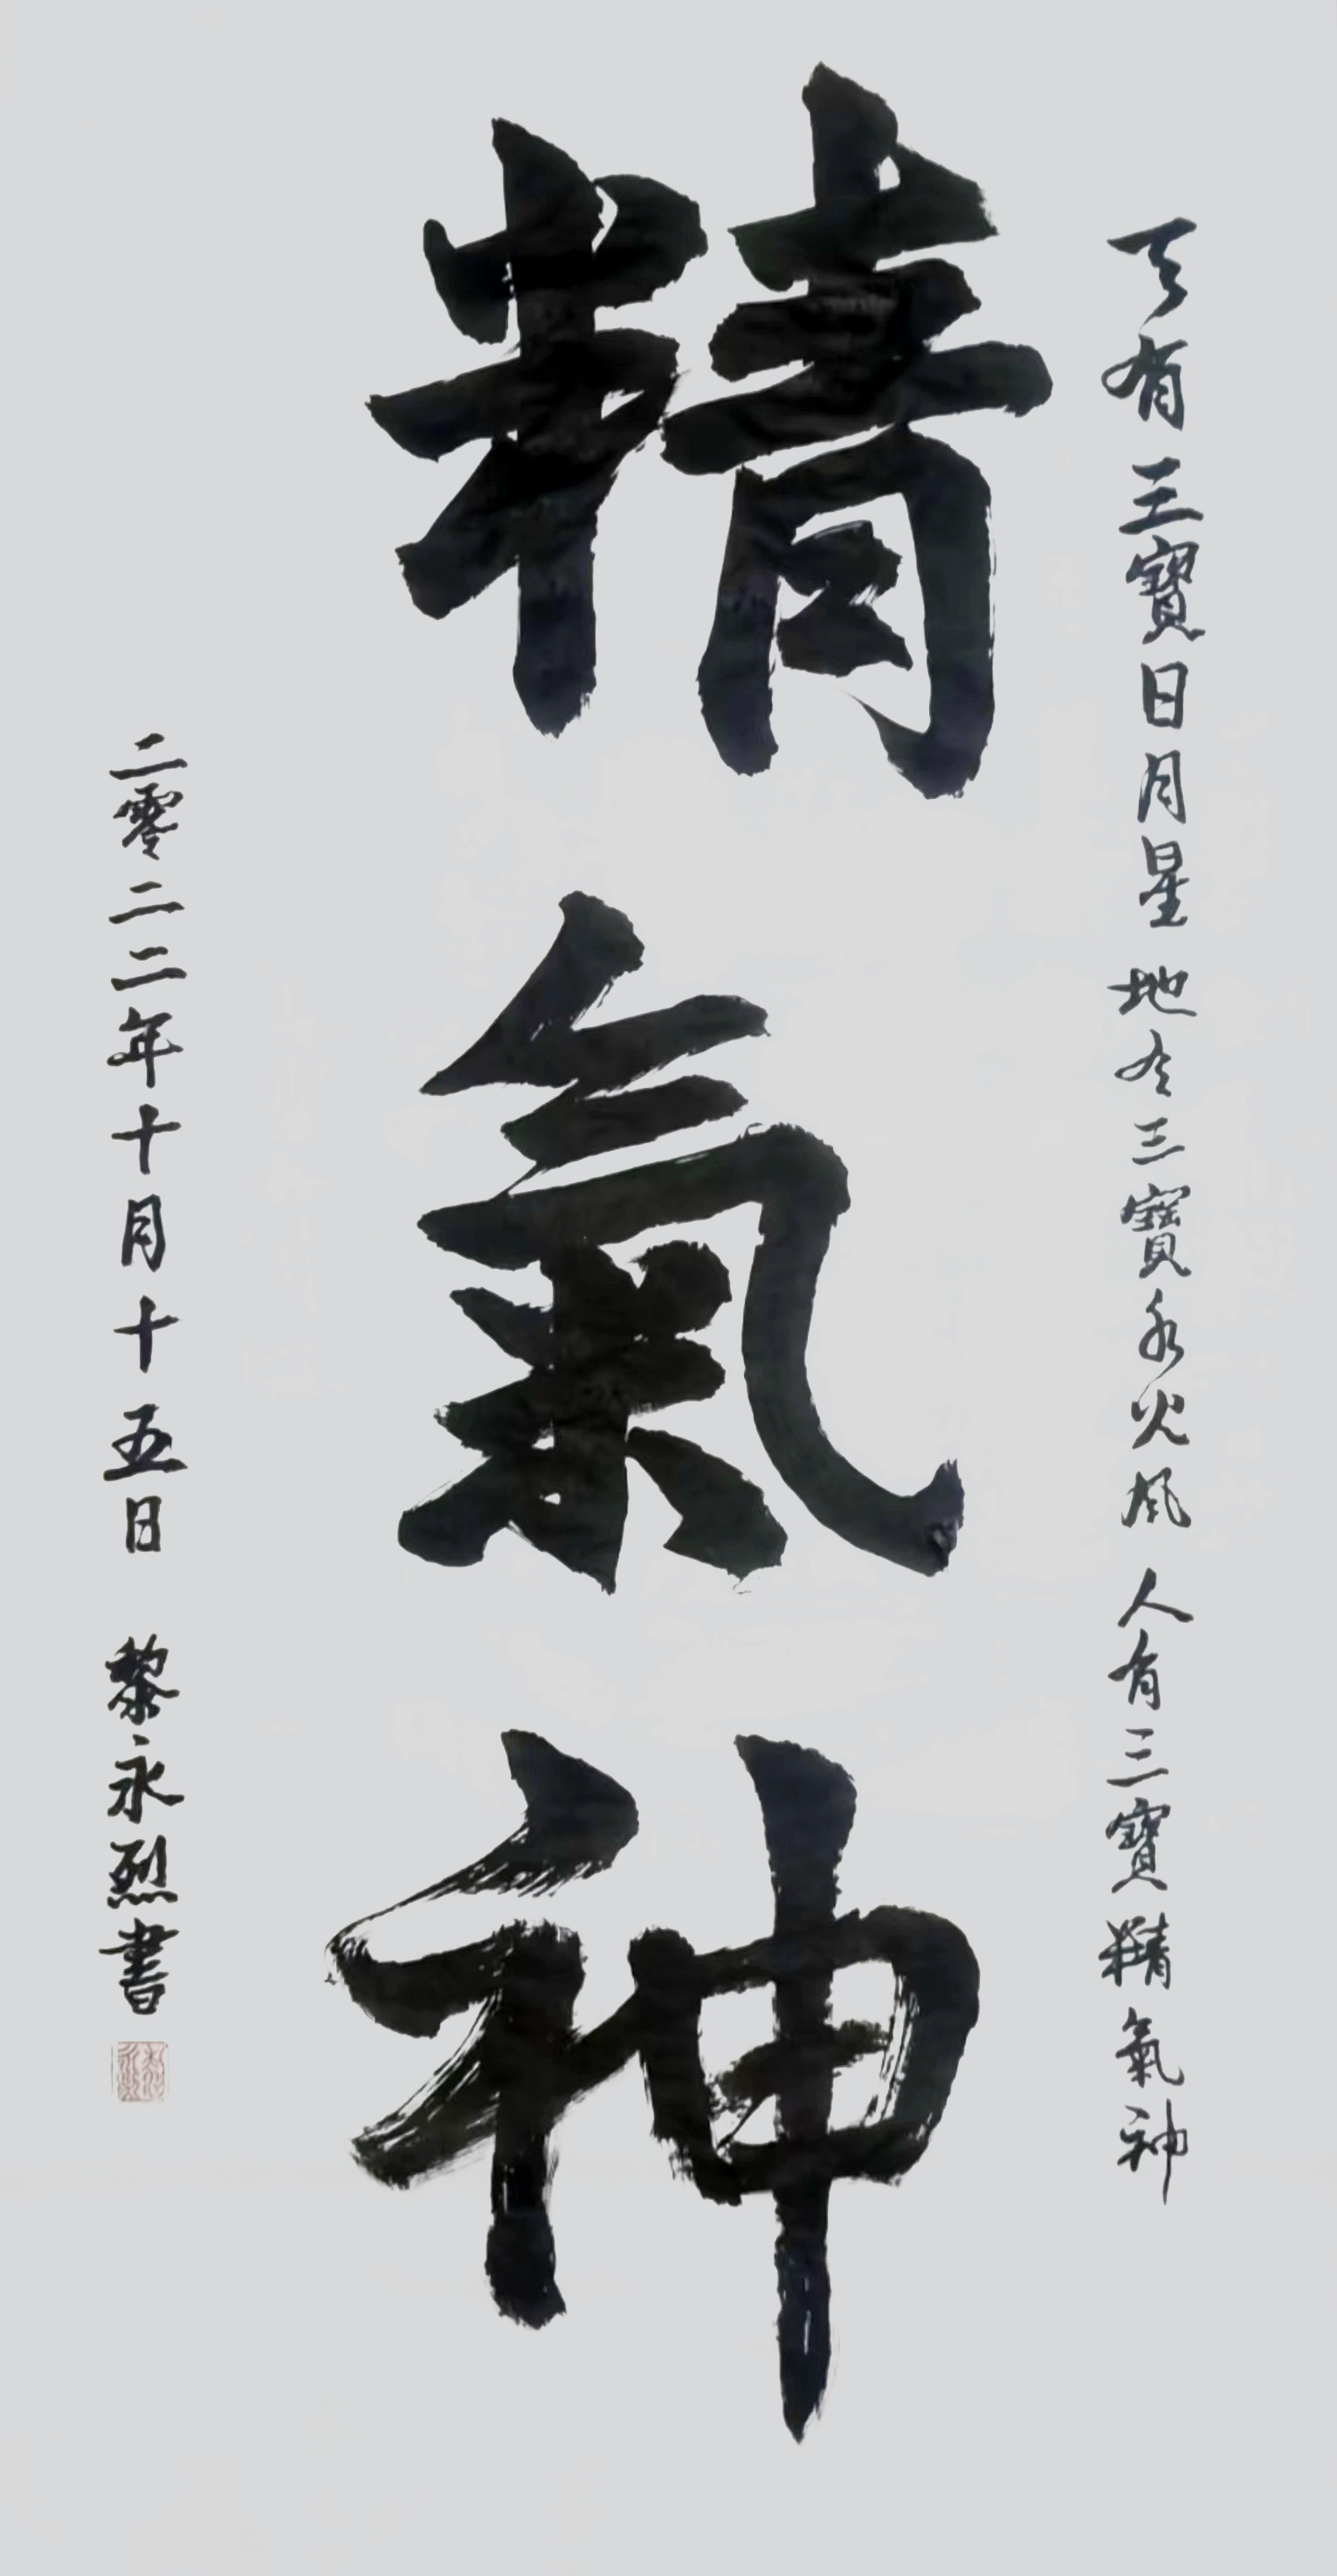 天有三寶日月星地有三寶水火風人有三寶精氣神
精氣神
二零二二年十月十五日 黎永烈書